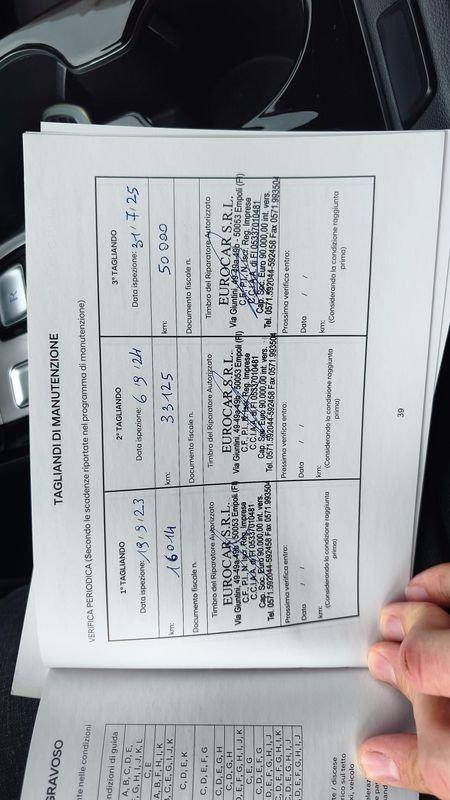 TAGLIANDI DI MANUTENZIONE
VERIFICA PERIODICA (Secondo le scadenze riportate nel programma di manutenzione)
1° TAGLIANDO
Data ispezione: 19/9/23
km: 16014
Documento fiscale n.
Timbro del Riparatore Autorizzato
EUROCAR S.R.L.
Via Giuntini, 49-49a-49b - 50053 Empoli (FI)
C.F., P.I., N. Iscr. Reg. Imprese
C.C.I.A.A. di FI 05337010481
Cap. Soc. Euro 90.000,00 int. vers.
Tel. 0571.592044-592458 Fax 0571.993504
Prossima verifica entro:
Data / /
km:
(Considerando la condizione raggiunta
prima)
2° TAGLIANDO
Data ispezione: 6/9/24
km: 33125
Documento fiscale n.
Timbro del Riparatore Autorizzato
EUROCAR S.R.L.
Via Giuntini, 49-49a-49b - 50053 Empoli (FI)
C.F., P.I., N. Iscr. Reg. Imprese
C.C.I.A.A. di FI 05337010481
Cap. Soc. Euro 90.000,00 int. vers.
Tel. 0571.592044-592458 Fax 0571.993504
Prossima verifica entro:
Data / /
km:
(Considerando la condizione raggiunta
prima)
3° TAGLIANDO
Data ispezione: 31/7/25
km: 50000
Documento fiscale n.
Timbro del Riparatore Autorizzato
EUROCAR S.R.L.
Via Giuntini, 49-49a-49b - 50053 Empoli (FI)
C.F., P.I., N. Iscr. Reg. Imprese
C.C.I.A.A. di FI 05337010481
Cap. Soc. Euro 90.000,00 int. vers.
Tel. 0571.592044-592458 Fax 0571.993504
Prossima verifica entro:
Data / /
km:
(Considerando la condizione raggiunta
prima)
39
GRAVOSO
nte nelle condizioni
ndizioni di guida
A, B, C, D, E,
G, H, I, J, K, L
C, E
A, B, F, H, I, K
C, D, E, K
C, D, E, F, G
C, D, E, G, H
C, D, G, H
R